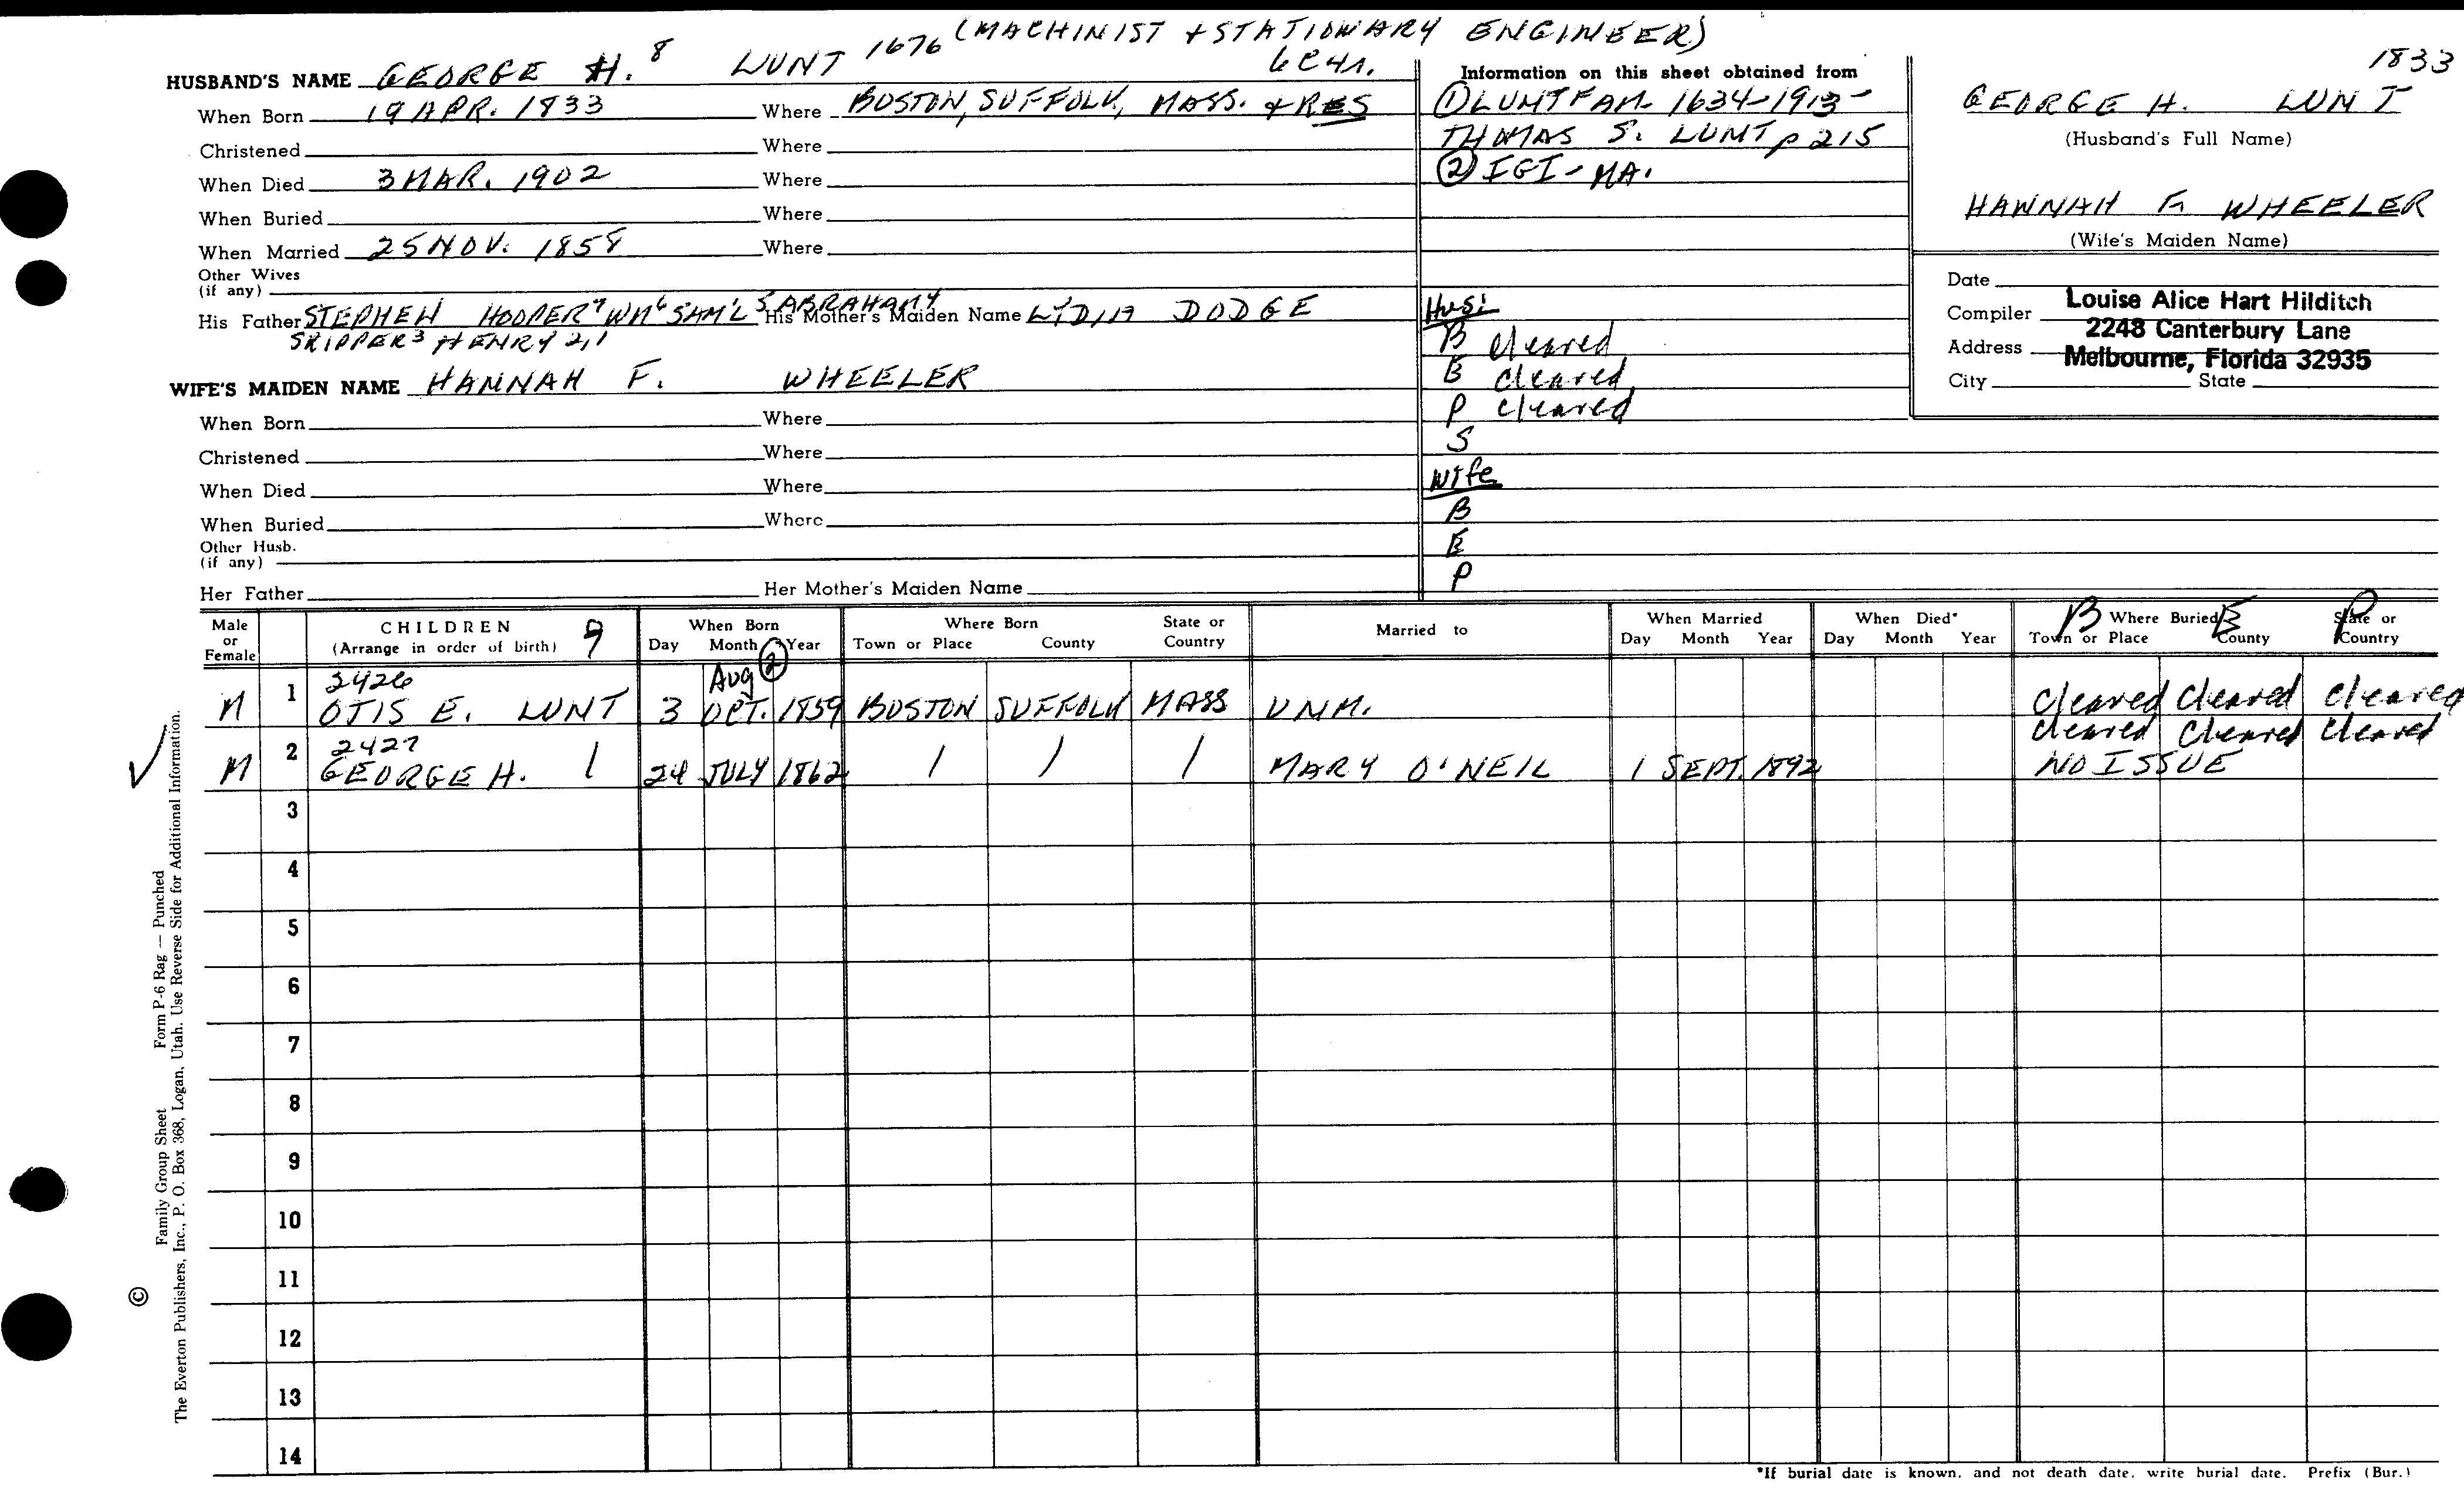 (MACHINIST + STATIONARY ENGINEER)
1833
HUSBAND'S NAME GEORGE H. 8 LUNT 1676
When Born 19 APR. 1833 Where BOSTON, SUFFOLK, MASS. & RES
Christened Where
When Died 3 MAR. 1902 Where
When Buried Where
When Married 25 NOV. 1858 Where
Other Wives
(if any)
His Father STEPHEN HOOPER 7 WM 6 SAM'L 5 ABRAHAM 4 His Mother's Maiden Name LYDIA DODGE
SKIPPER 3 HENRY 2,1
WIFE'S MAIDEN NAME HANNAH F. WHEELER
When Born Where
Christened Where
When Died Where
When Buried Where
Other Husb.
(if any)
Her Father Her Mother's Maiden Name
Information on this sheet obtained from
① LUNT FAM- 1634-1913-
THOMAS S. LUNT p 215
② IGI - MA.
Husb
B cleared
E cleared
P cleared
S
Wife
B
E
P
GEORGE H. LUNT
(Husband's Full Name)
HANNAH F. WHEELER
(Wife's Maiden Name)
Date
Compiler Louise Alice Hart Hilditch
Address 2248 Canterbury Lane
Melbourne, Florida 32935
City State
Male or Female
CHILDREN 9
(Arrange in order of birth)
When Born
Day Month Year
Where Born
Town or Place County State or Country
Married to
When Married
Day Month Year
When Died*
Day Month Year
B Where Buried E P
Town or Place County State or Country
Aug ②
M 1 2426 OTIS E. LUNT 3 OCT. 1859 BOSTON SUFFOLK MASS UNM. cleared cleared cleared
cleared cleared cleared
M 2 2427 GEORGE H. | 24 JULY 1862 | | | MARY O'NEIL 1 SEPT. 1892 NO ISSUE
3
4
5
6
7
8
9
10
11
12
13
14
*If burial date is known, and not death date, write burial date. Prefix (Bur.)
Family Group Sheet Form P-6 Rag — Punched
© The Everton Publishers, Inc., P. O. Box 368, Logan, Utah. Use Reverse Side for Additional Information.